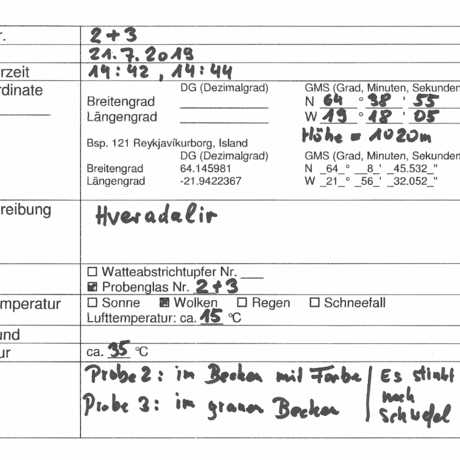 r. 2+3
21.7.2019
rzeit 14:42, 14:44
rdinate DG (Dezimalgrad) GMS (Grad, Minuten, Sekunden
Breitengrad N 64 ° 38 ' 55
Längengrad W 19 ° 18 ' 05
Höhe = 1020m
Bsp. 121 Reykjavíkurborg, Island
DG (Dezimalgrad) GMS (Grad, Minuten, Sekunden
Breitengrad 64.145981 N _64_° __8_' _45.532_"
Längengrad -21.9422367 W _21_° _56_' _32.052_"
reibung Hveradalir
☐ Watteabstrichtupfer Nr. ___
☒ Probenglas Nr. 2+3
mperatur ☐ Sonne ☒ Wolken ☐ Regen ☐ Schneefall
Lufttemperatur: ca. 15 °C
und
ur ca. 35 °C
Probe 2: im Becken mit Farbe / Es stinkt
nach
Probe 3: im grauen Becken Schwefel